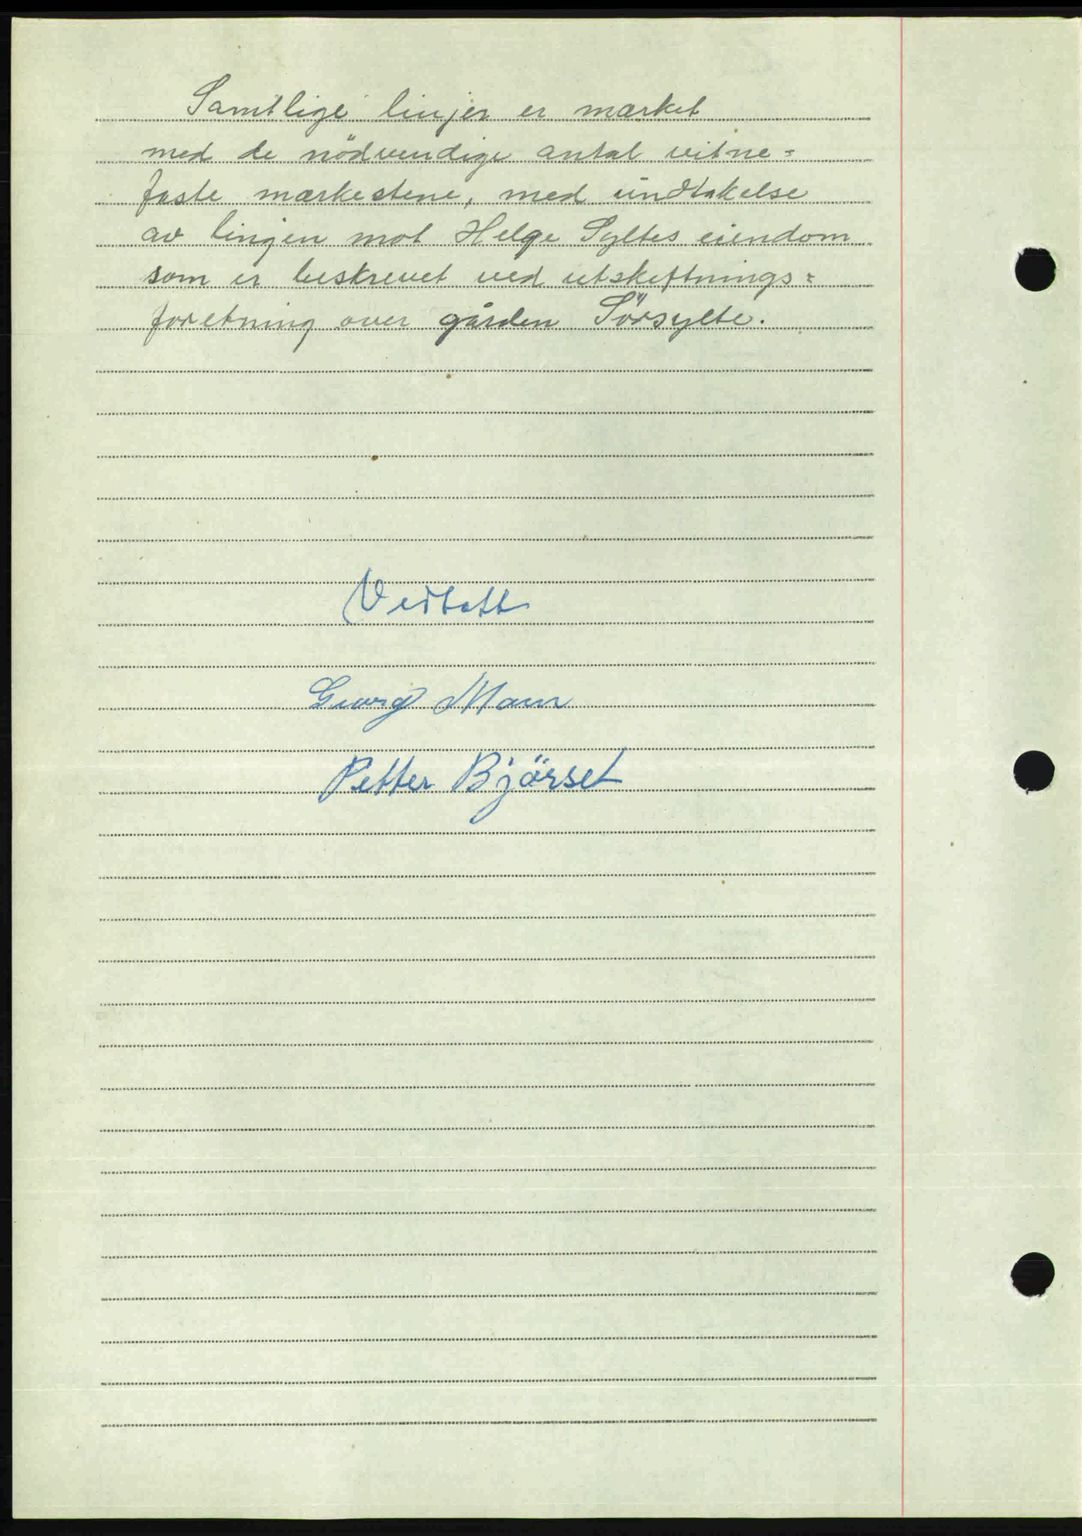 Samtlige linjer er mærket
med de nödvendige antal vitne=
faste merkestene, med undtakelse
av linjen mot Helge Syltes eiendom
som er beskrevet ved utskiftnings=
forretning over gården Sörsylte.
Vedtatt
Georg Moen
Petter Bjørset